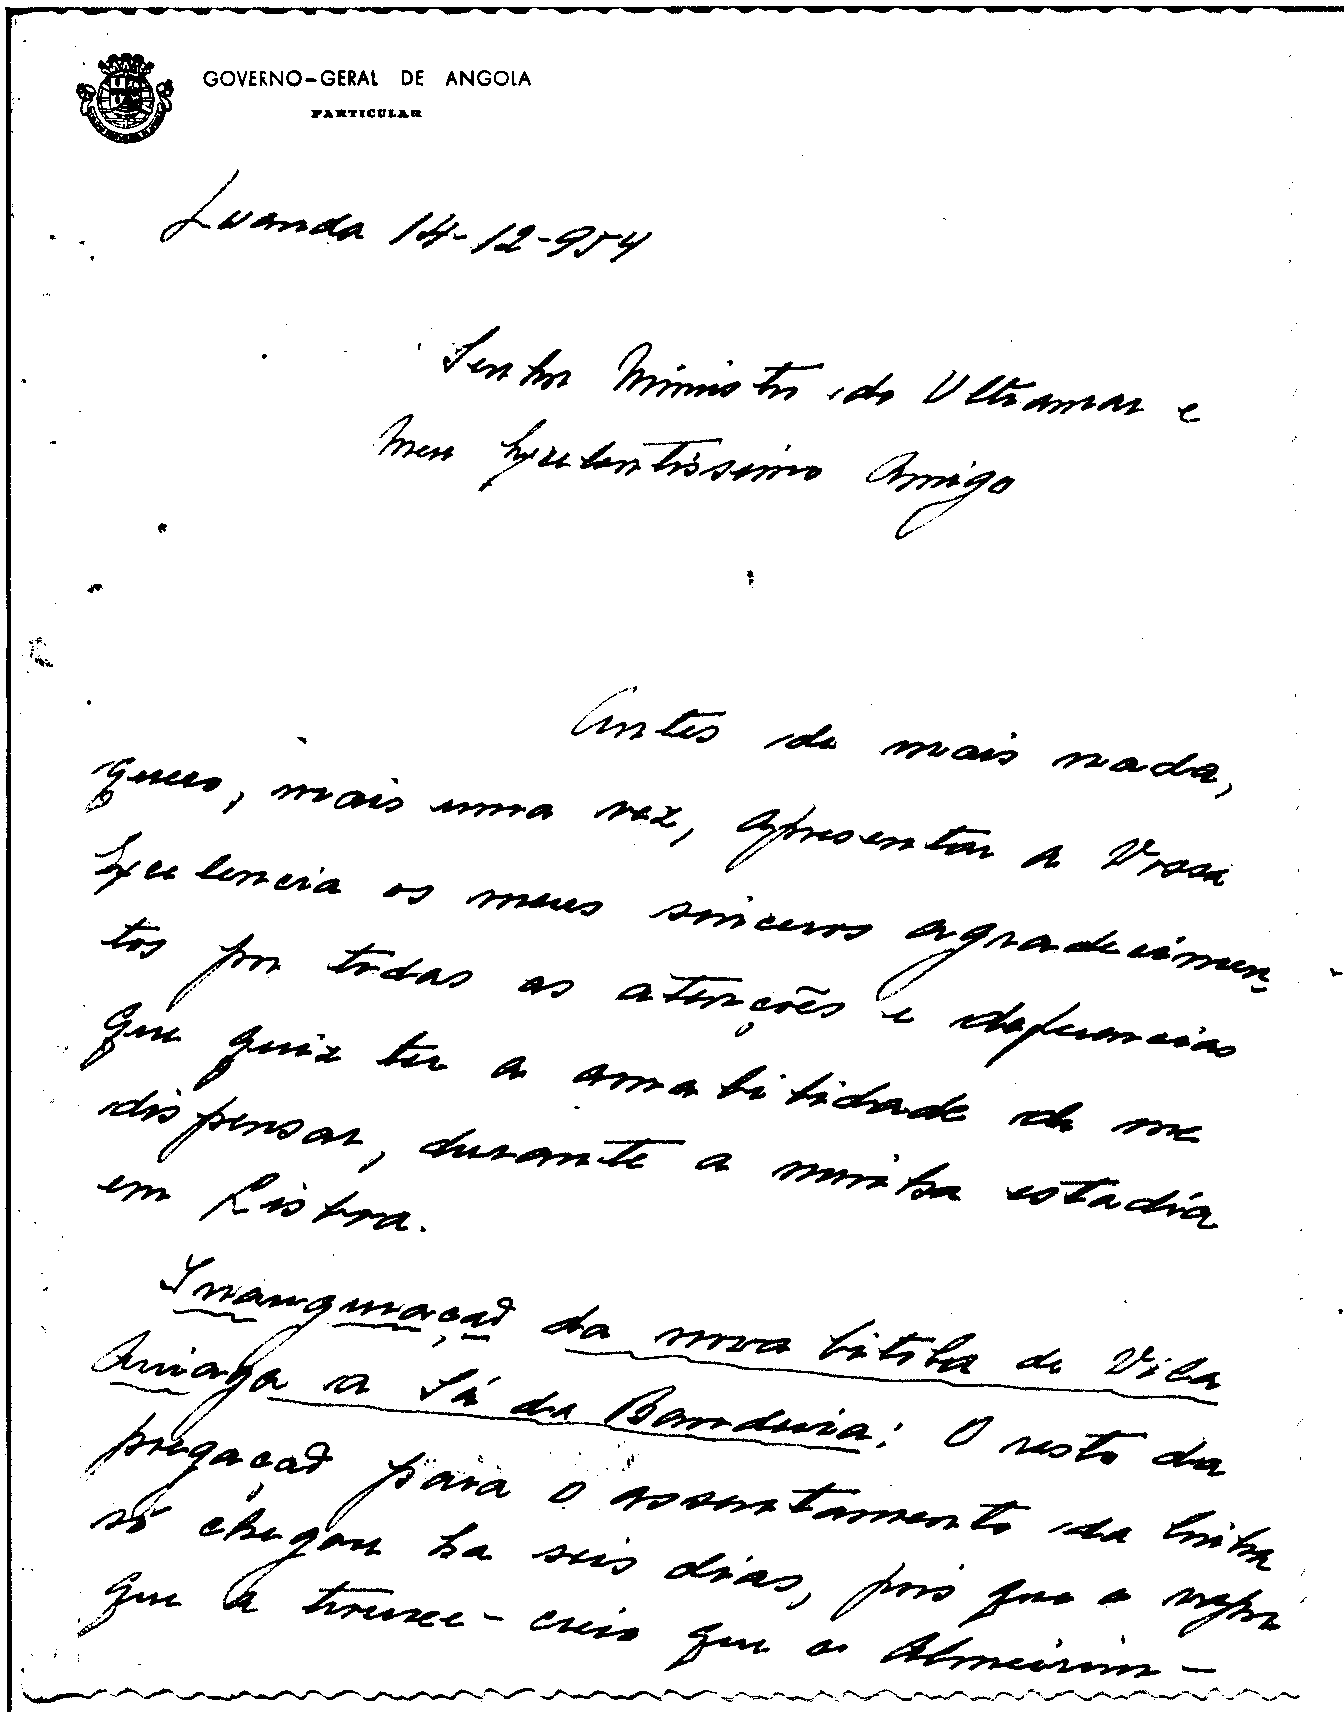 GOVERNO-GERAL DE ANGOLA
PARTICULAR
Luanda 14-12-954
Senhor Ministro do Ultramar e
Meu Excelentíssimo Amigo
Antes de mais nada,
quero, mais uma vez, apresentar a Vossa
Excelencia os meus sinceros agradecimen-
tos por todas as atenções e deferencias
que quiz ter a amabilidade de me
dispensar, durante a minha estadia
em Lisboa.
Inauguração da nova bitola de Vila
Arriaga a Sá da Bandeira: O resto da
pregação para o assentamento da linha
só chegou ha seis dias, pois que o vapor
que a trouxe - creio que o Almeirim -